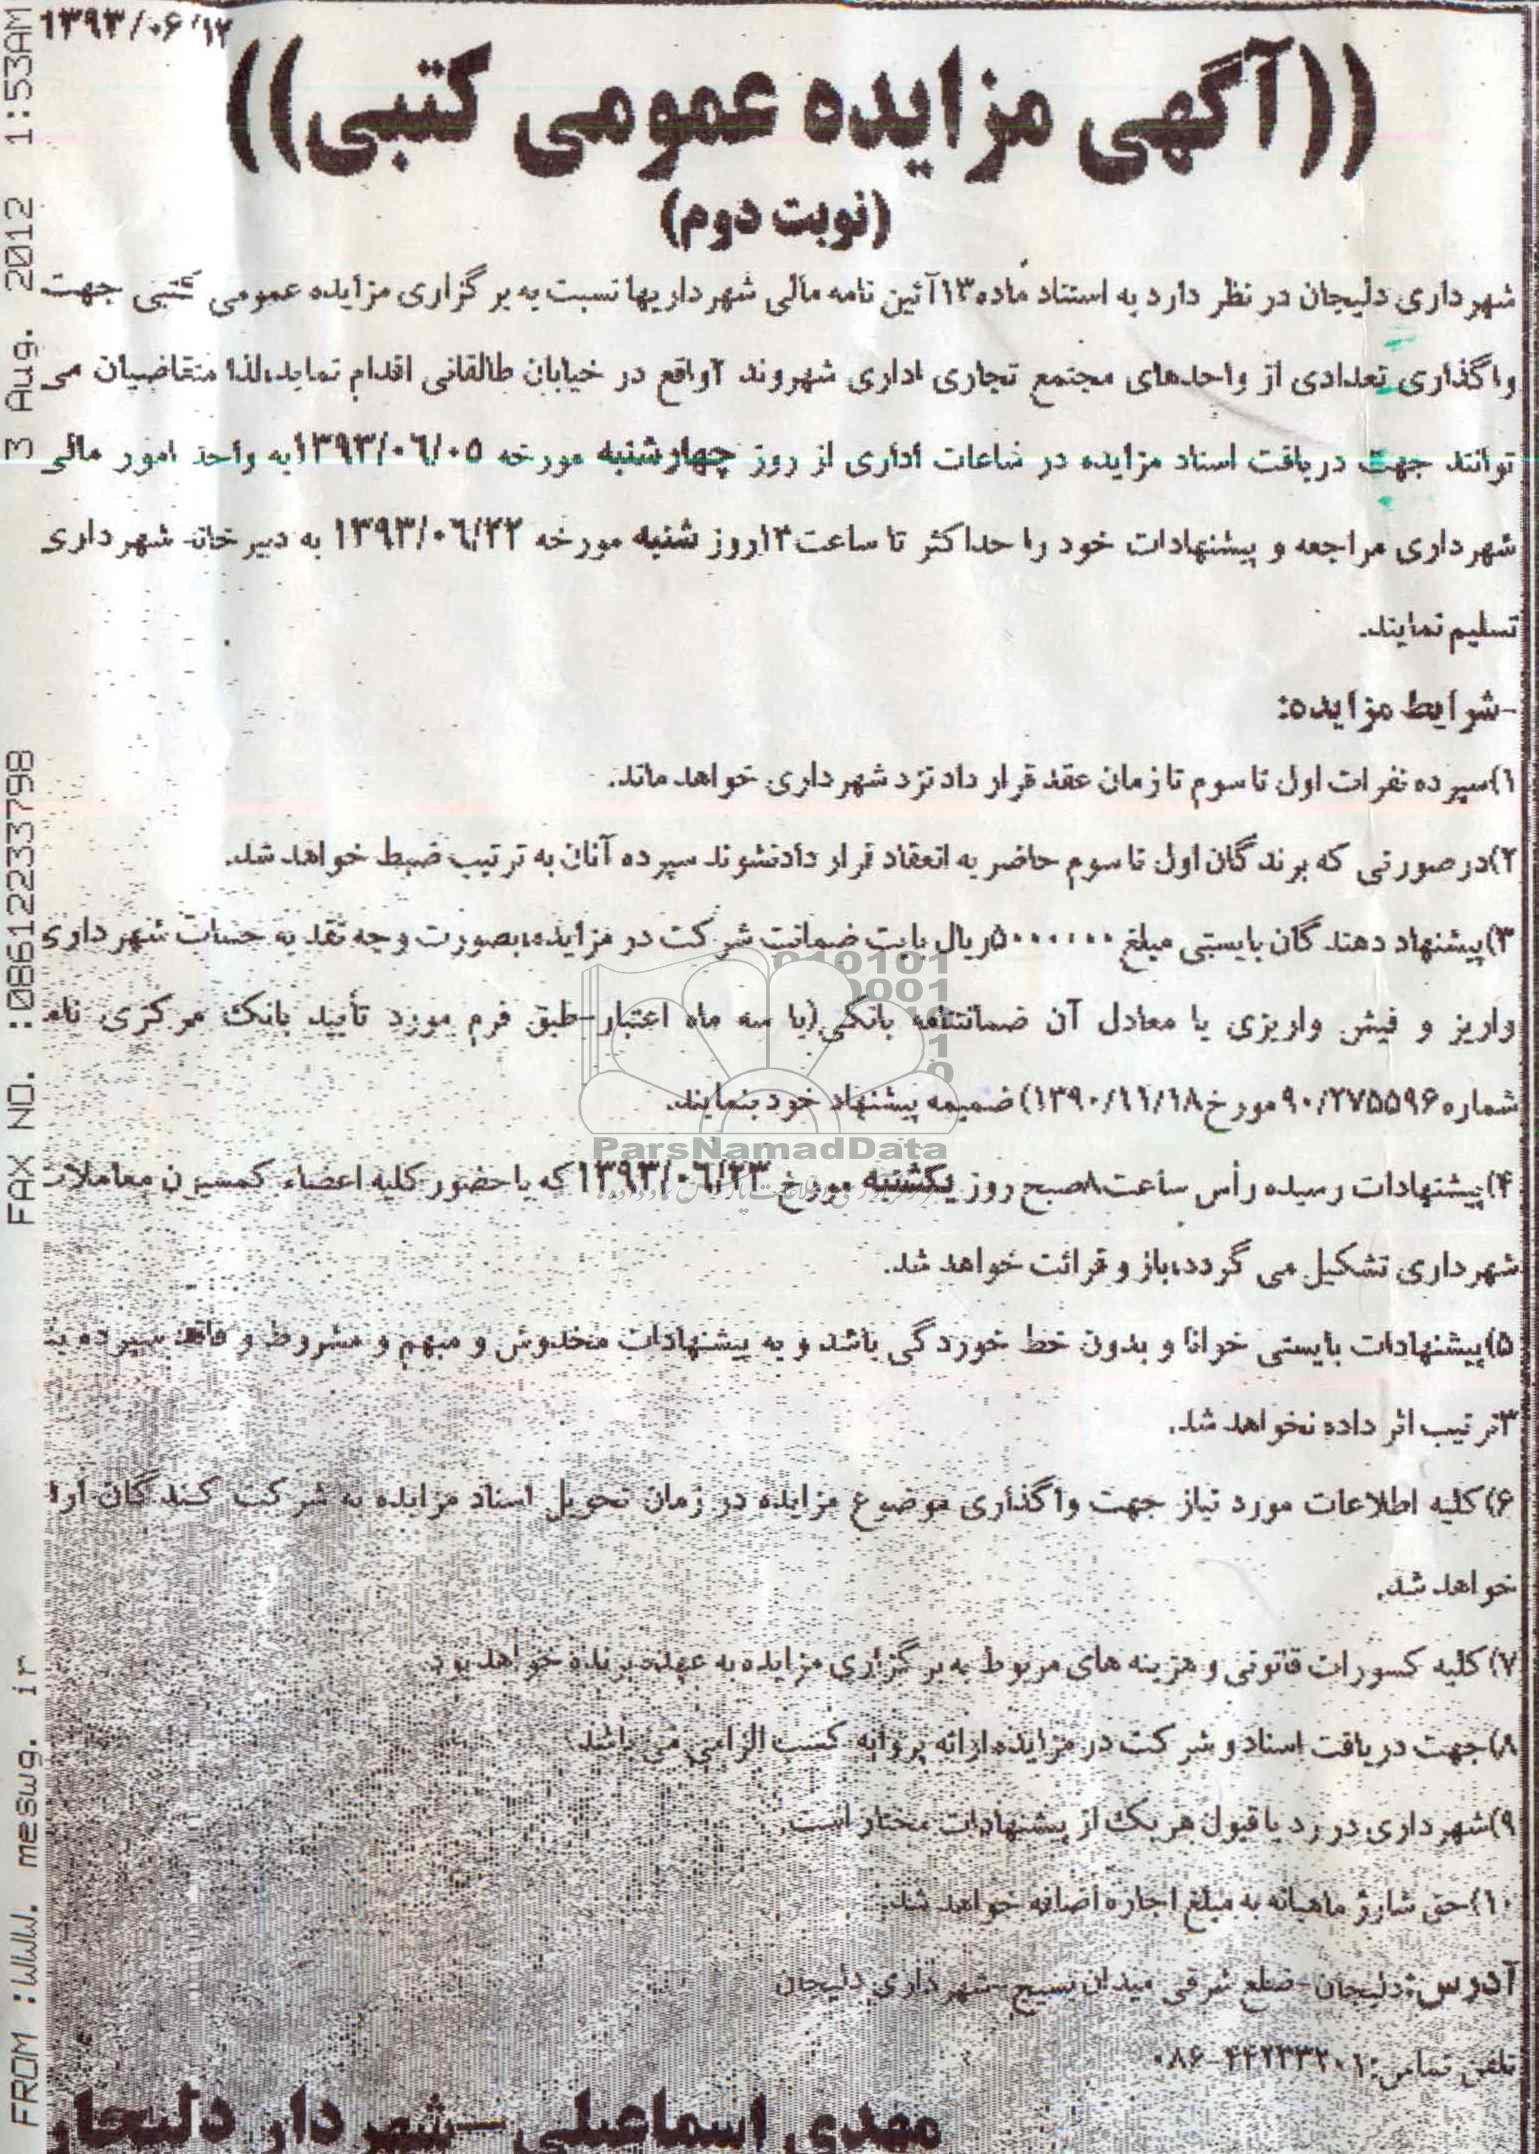 ۱۳۹۳/۰۶/۱۲
((آگهی مزایده عمومی کتبی))
(نوبت دوم)
شهرداری دلیجان در نظر دارد به استناد ماده۱۳آئین نامه مالی شهرداریها نسبت به برگزاری مزایده عمومی کتبی جهت
واگذاری تعدادی از واحدهای مجتمع تجاری اداری شهروند ۲واقع در خیابان طالقانی اقدام نماید،لذا متقاضیان می
توانند جهت دریافت اسناد مزایده در ساعات اداری از روز چهارشنبه مورخه ۱۳۹۳/۰۶/۰۵به واحد امور مالی
شهرداری مراجعه و پیشنهادات خود را حداکثر تا ساعت۱۴روز شنبه مورخه ۱۳۹۳/۰۶/۲۲ به دبیرخانه شهرداری
تسلیم نمایند.
-شرایط مزایده:
۱)سپرده نفرات اول تا سوم تا زمان عقد قرار داد نزد شهرداری خواهد ماند.
۲)در صورتی که برندگان اول تا سوم حاضر به انعقاد قرار دادنشوند سپرده آنان به ترتیب ضبط خواهد شد.
۳)پیشنهاد دهندگان بایستی مبلغ ۵۰۰۰۰۰۰ریال بابت ضمانت شرکت در مزایده،بصورت وجه نقد به حساب شهرداری
واریز و فیش واریزی یا معادل آن ضمانتنامه بانکی(با سه ماه اعتبار-طبق فرم مورد تأیید بانک مرکزی نامه
شماره۹۰/۲۷۵۵۹۶مورخ۱۳۹۰/۱۱/۱۸)ضمیمه پیشنهاد خود بنمایند.
۴)پیشنهادات رسیده رأس ساعت۸صبح روز یکشنبه مورخ ۱۳۹۳/۰۶/۲۳ که با حضور کلیه اعضاء کمسیون معاملات
شهرداری تشکیل می گردد،باز و قرائت خواهد شد.
۵)پیشنهادات بایستی خوانا و بدون خط خوردگی باشد و به پیشنهادات مخدوش و مبهم و مشروط و فاقد سپرده بند
۳ترتیب اثر داده نخواهد شد.
۶)کلیه اطلاعات مورد نیاز جهت واگذاری موضوع مزایده در زمان تحویل اسناد مزایده به شرکت کنندگان ارا
خواهد شد.
۷)کلیه کسورات قانونی و هزینه های مربوط به برگزاری مزایده به عهده برنده خواهد بود.
۸)جهت دریافت اسناد و شرکت در مزایده،ارائه پروانه کسب الزامی می باشد.
۹)شهرداری در رد یا قبول هر یک از پیشنهادات مختار است.
۱۰)حق شارژ ماهیانه به مبلغ اجاره اضافه خواهد شد.
آدرس:دلیجان-ضلع شرقی میدان بسیج-شهرداری دلیجان
تلفن تماس:۰۸۶-۴۴۲۲۳۲۰۱
مهدی اسماعیلی-شهردار دلیجان
FROM :www. meswg. ir
FAX NO. :08612233798
3 Aug. 2012 1:53AM
ParsNamadData